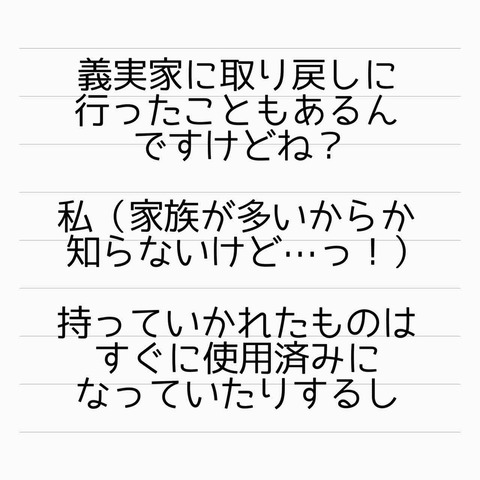 義実家に取り戻しに
行ったこともあるん
ですけどね？
私（家族が多いからか
知らないけど…っ！）
持っていかれたものは
すぐに使用済みに
なっていたりするし